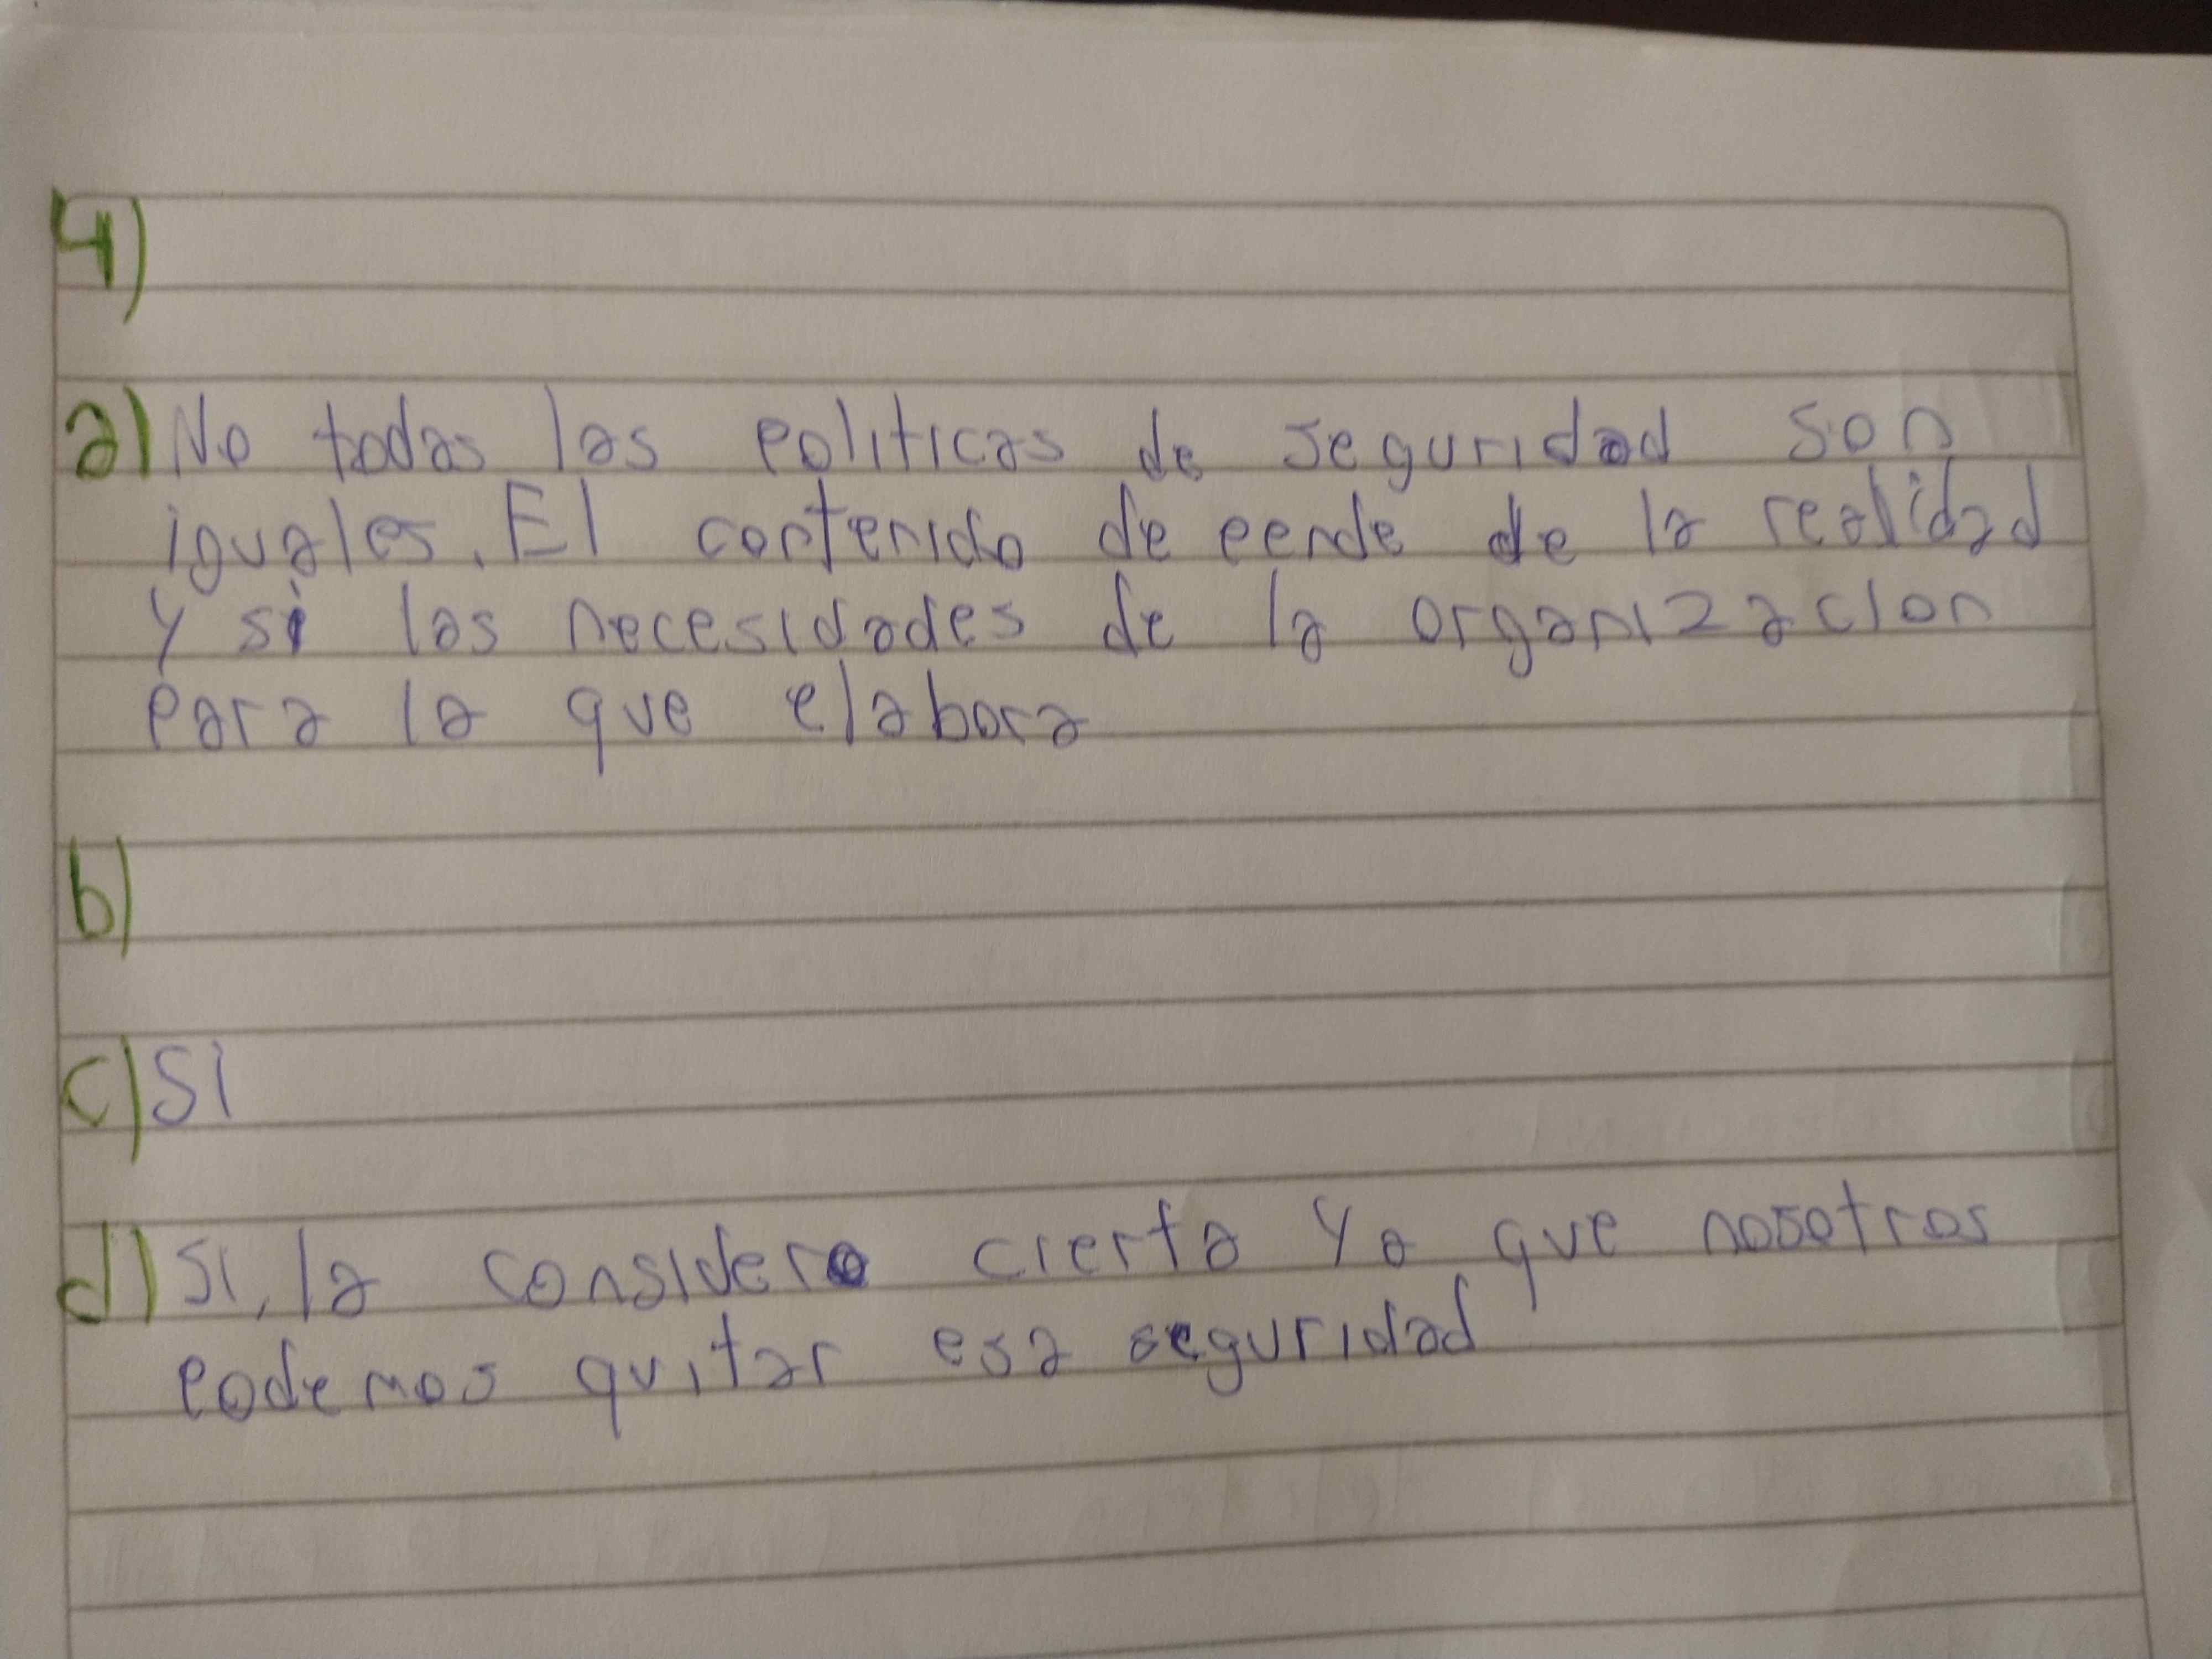 4)
a) No todas las politicas de seguridad son
iguales. El contenido depende de la realidad
y si las necesidades de la organizacion
para la que elabora
b)
c) Si
d) Si, la considero cierta ya que nosotros
podemos quitar esa seguridad